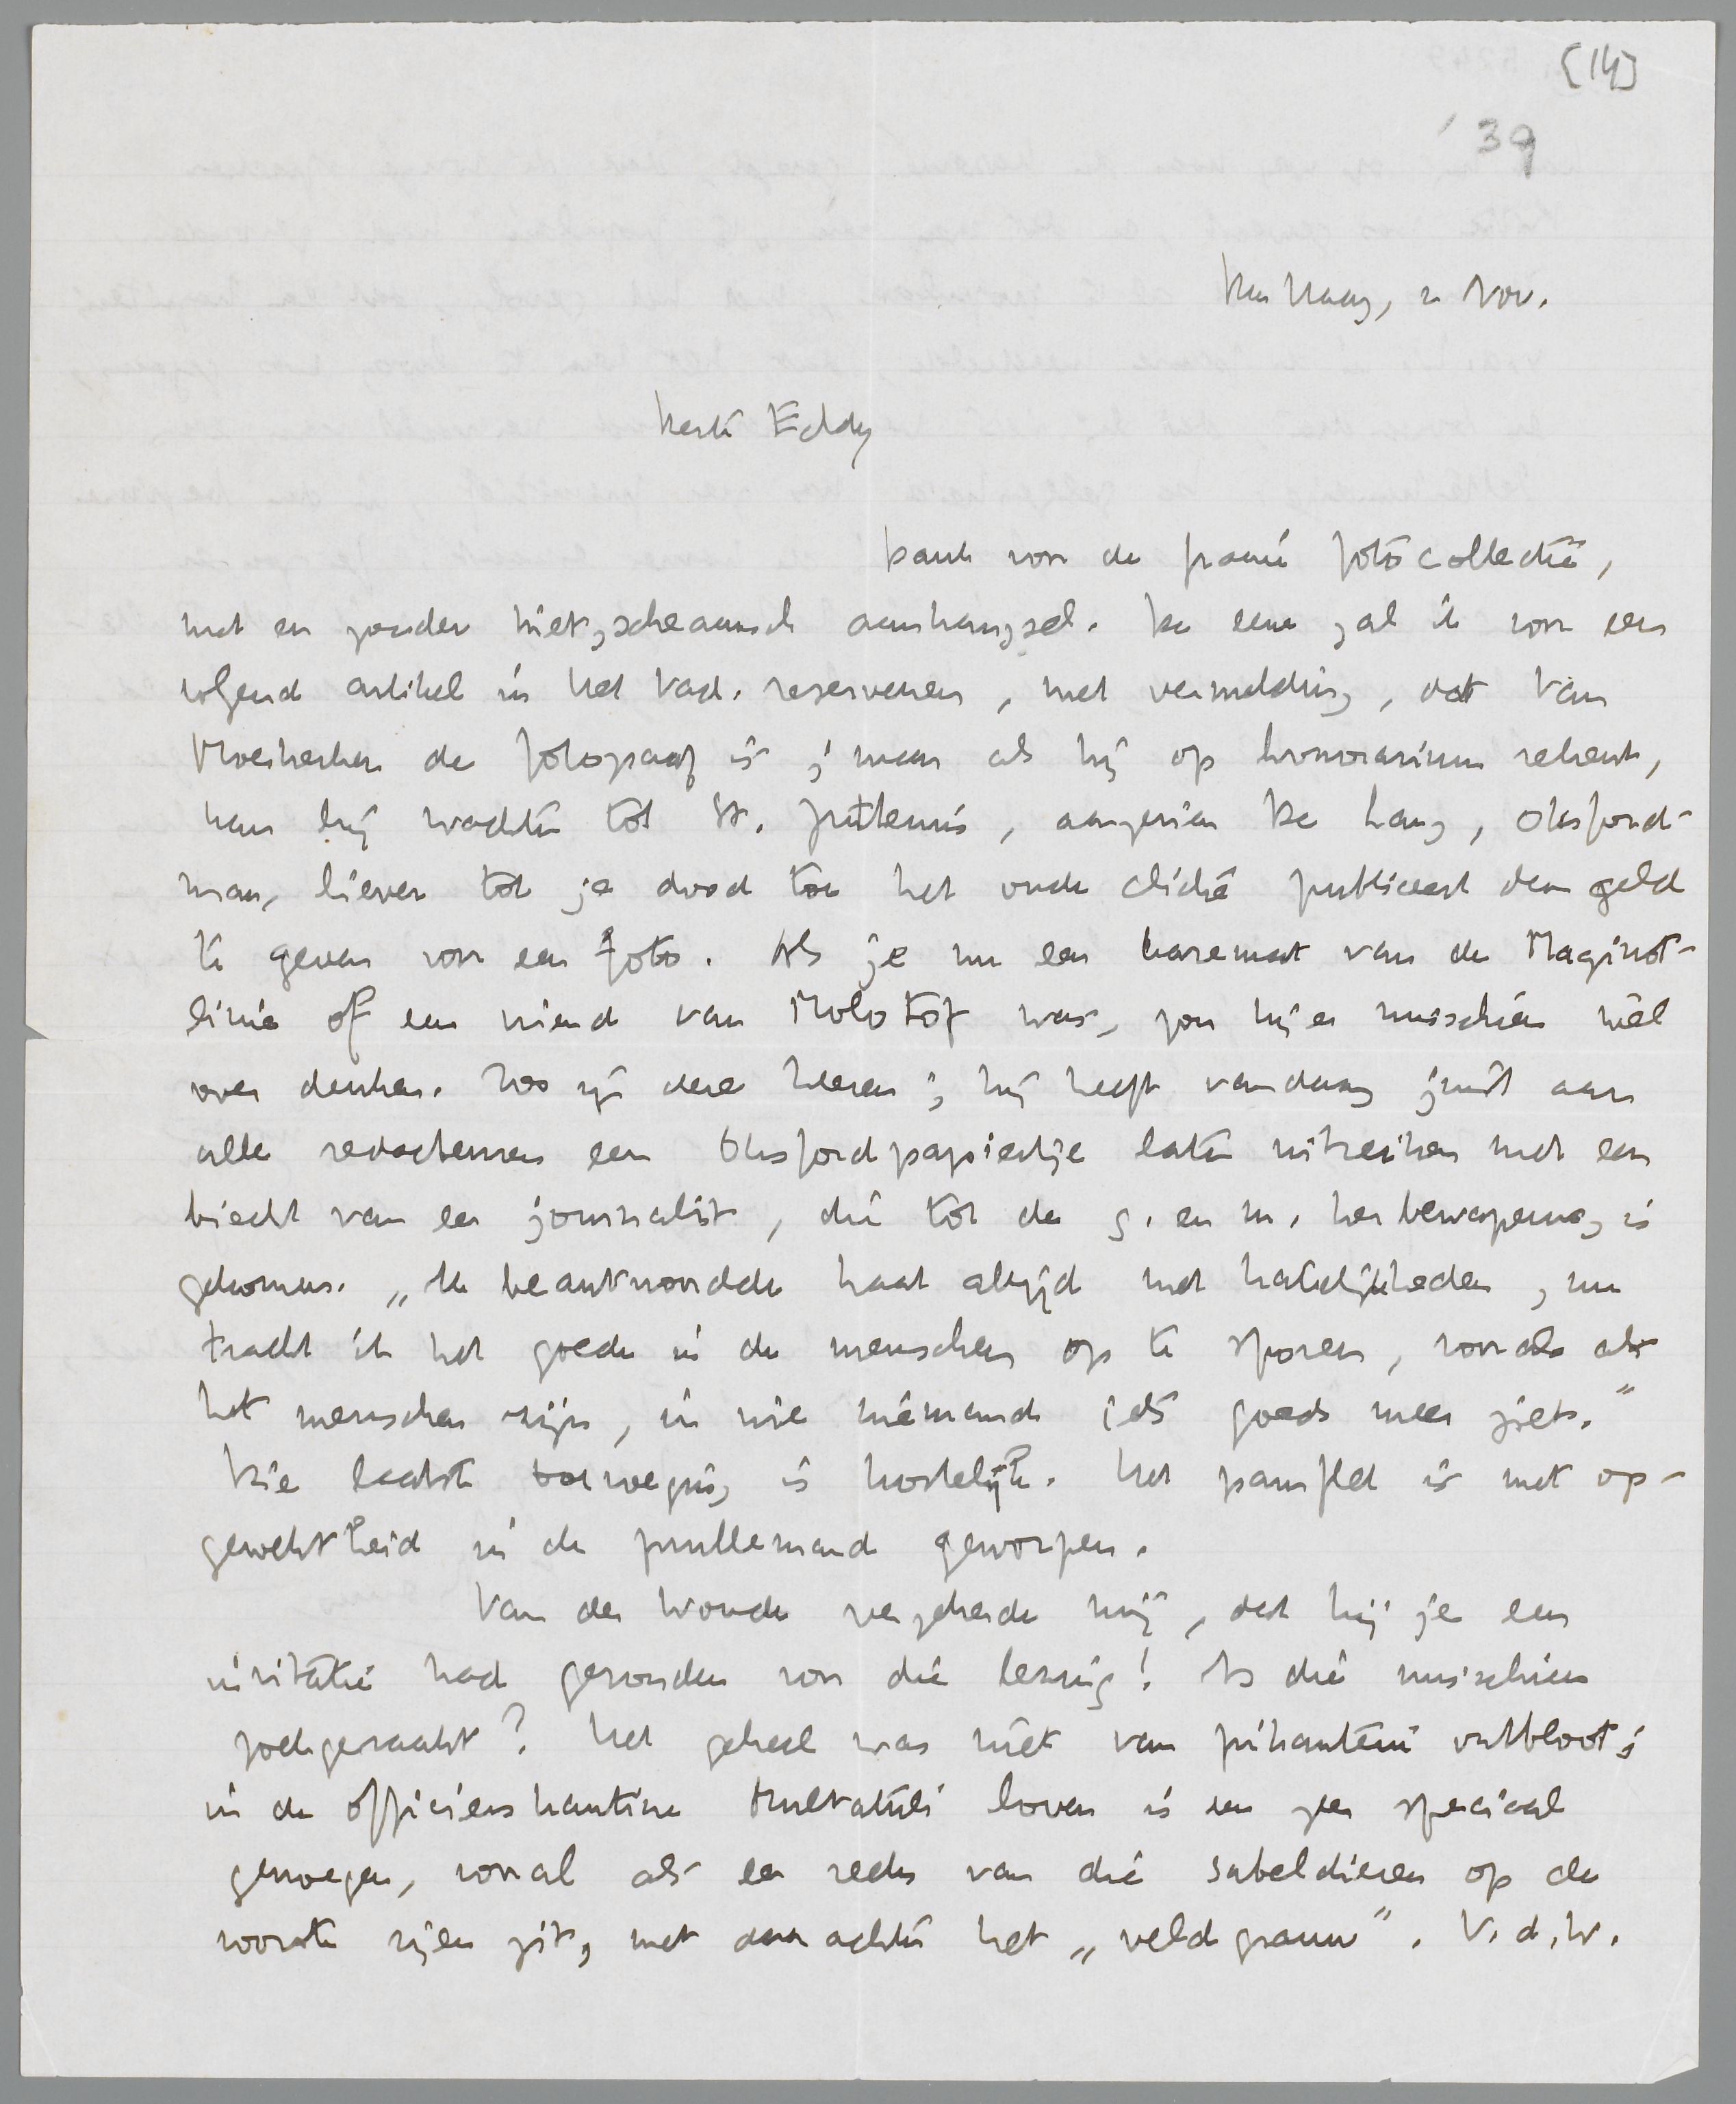 [14]
'39
Den Haag, 2 Nov.
Beste Eddy
Dank voor de fraaie fotocollectie,
met en zonder nietzscheaansch aanhangsel. De eene zal ik voor een
volgend artikel in Het Vad. reserveeren, met vermelding, dat Van
de fotograaf is; maar als hij op honorarium rekent,
kan hij wachten tot St. Juttemis, aangezien De Lang, Oksford-
man, liever tot je dood toe het oude cliché publiceert dan geld
te geven voor een foto. Als je nu een kazemat van de Maginot-
linie of een vriend van Molotof was, zou hij er misschien wèl
over denken. Zoo zijn deze heeren; hij heeft vandaag juist aan
alle redacteuren een Oksfordpapiertje laten uitreiken met een
biecht van een journalist, die tot de g. en m. herbewapening is
gekomen. „Ik beantwoordde haat altijd met hatelijkheden, nu
tracht ik het goede in de menschen op te sporen, vooral als
het menschen zijn, in wie niemand iets goeds meer ziet.”
Die laatste toevoeging is kostelijk. Het pamflet is met op-
gewektheid in de prullemand geworpen.
Van der Woude verzekerde mij, dat hij je een
invitatie had gezonden voor die lezing! Is die misschien
zoekgeraakt? Het geheel was niet van pikanterie ontbloot;
in de officierskantine Multatuli loven is een zeer speciaal
genoegen, vooral als een reeks van die sabeldieren op de
voorste rijen zit, met daarachter het „veldgrauw”. V.d.W.